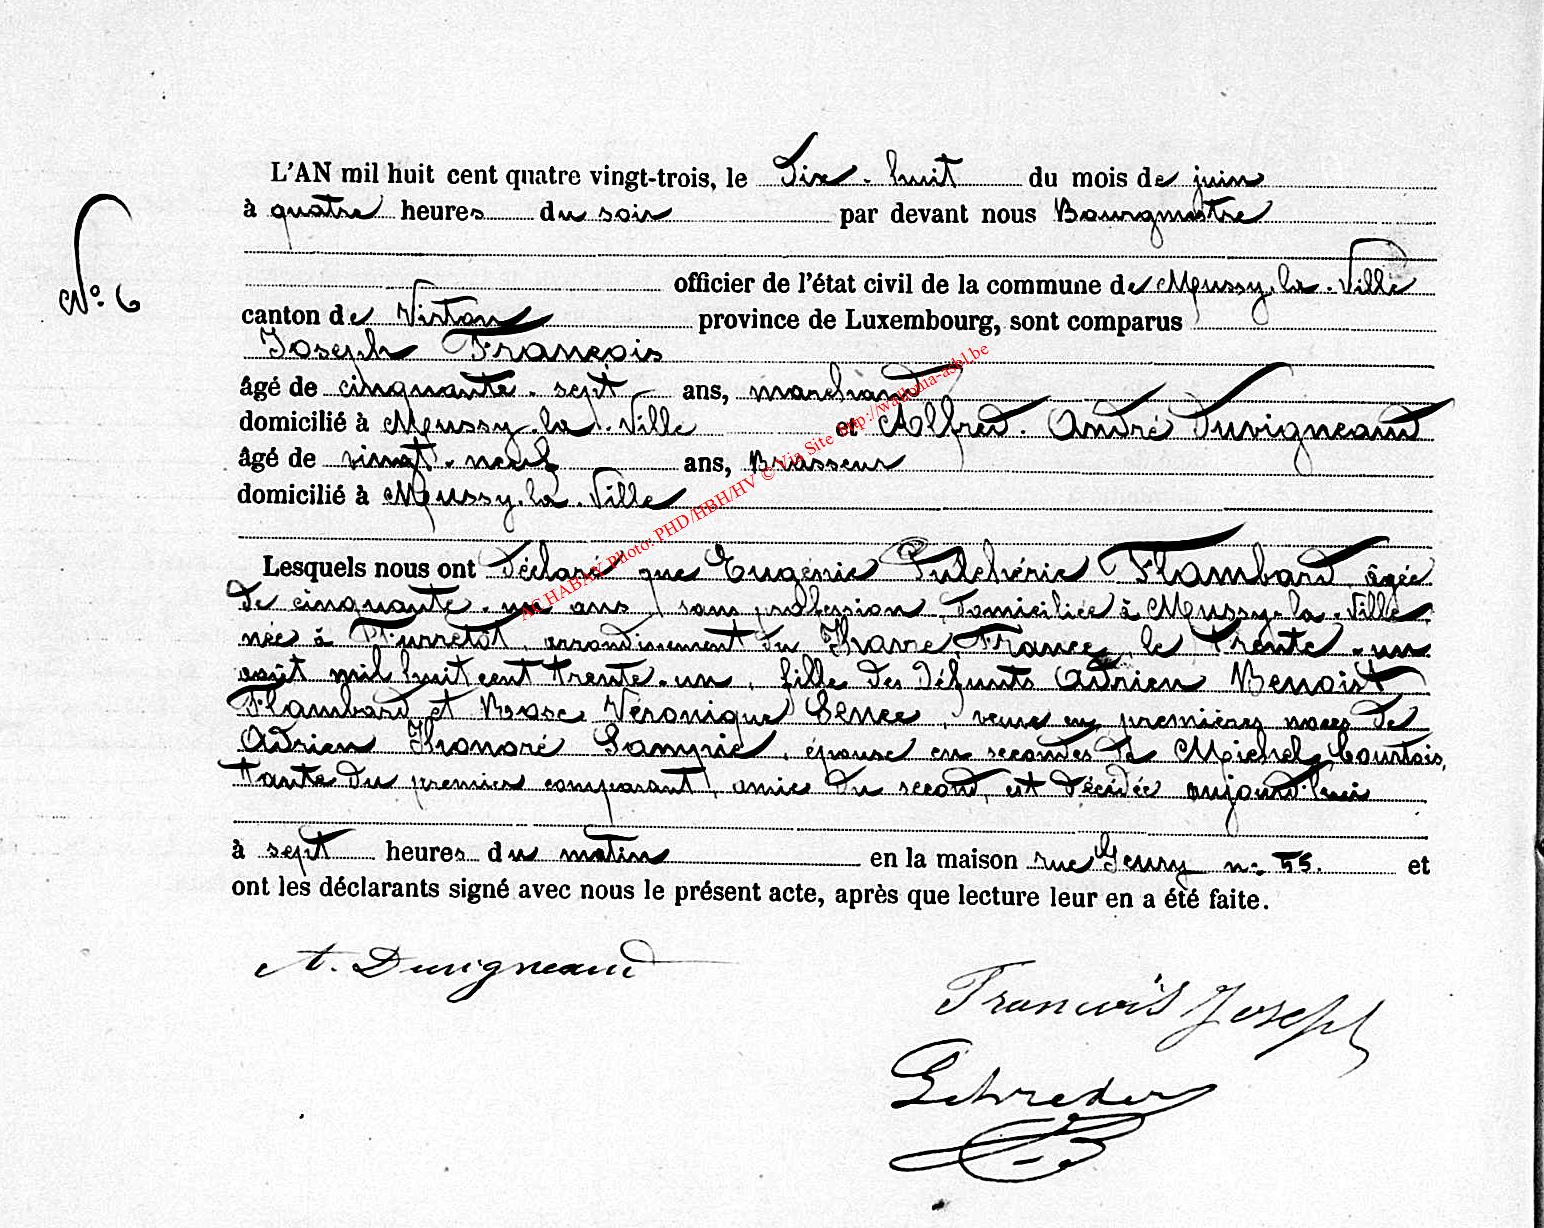 L'AN mil huit cent quatre vingt-trois, le Dix-huit du mois de juin
à quatre heures du soir par devant nous Bourgmestre
officier de l'état civil de la commune de Mussy-la-Ville
N° 6
canton de Virton province de Luxembourg, sont comparus
Joseph François
âgé de cinquante-sept ans, marchand
domicilié à Mussy-la-Ville et Alfred-André Duvigneaud
âgé de vingt-neuf ans, Brasseur
domicilié à Mussy-la-Ville
Lesquels nous ont déclaré que Eugénie Pulchérie Flambard, âgée
de cinquante-un ans, sans profession, domiciliée à Mussy-la-Ville,
née à arrondissement du Havre France, le trente-un
août mil huit cent trente-un, fille des défunts Adrien Benoist
Flambard et Rose Véronique veuve en premières noces de
Adrien Honoré épouse en secondes de Michel Courtois,
tante du premier comparant, amie du second, est décédée aujourd'hui
à sept heures du matin en la maison rue n° 55. et
ont les déclarants signé avec nous le présent acte, après que lecture leur en a été faite.
A. Duvigneaud
François Joseph
Schreder
AC HABAY Photo: PHD/HBH/HV © Via Site http://wallonia-asbl.be